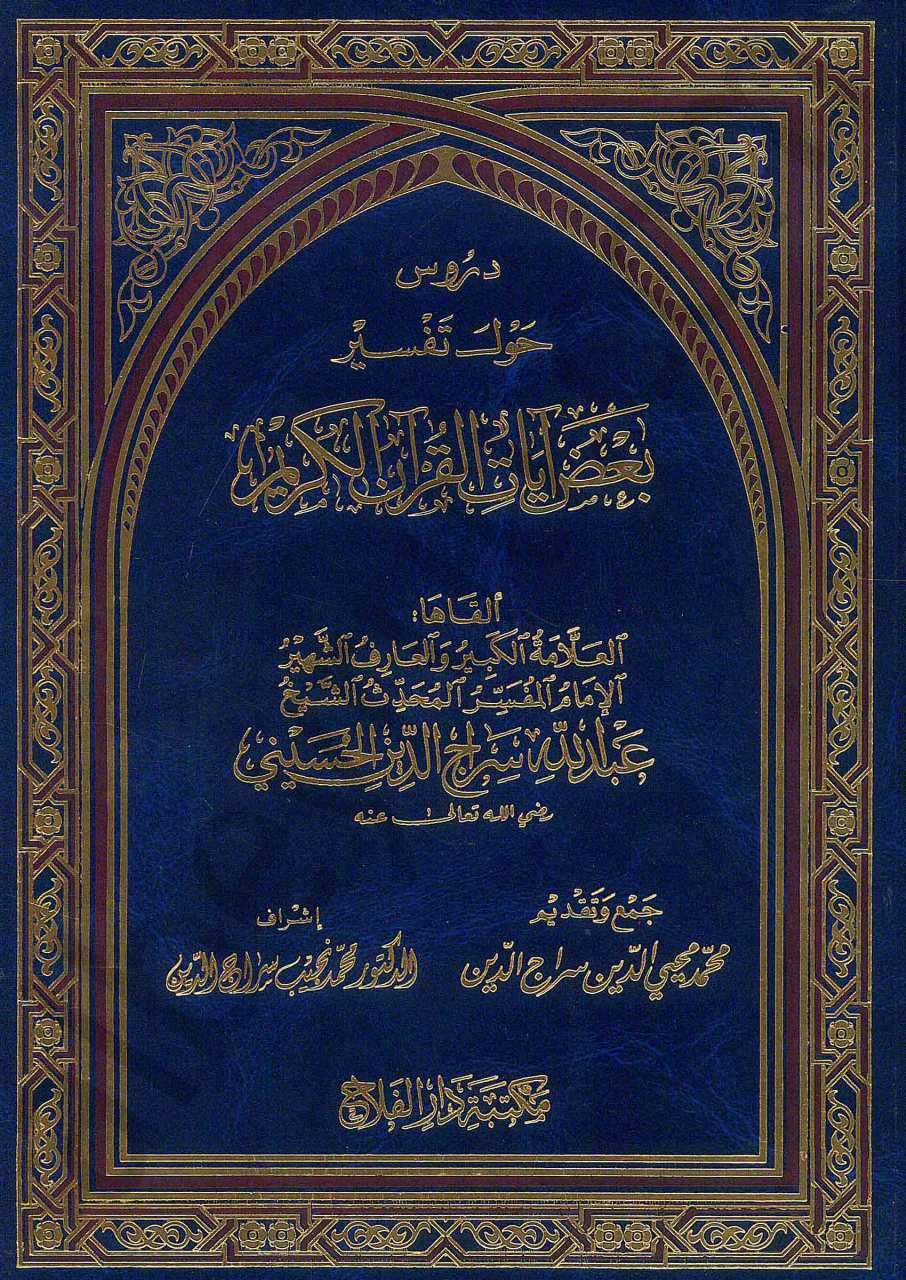 دروس
حَوْلَ تَفْسِيْر
بَعْضِ آيَاتِ القُرْآنِ الكَرِيْمِ
ألقاها:
العَلَّامَةُ الكَبِيْرُ وَالعَارِفُ الشَّهِيْرُ
الإمَامُ المُفَسِّرُ المُحَدِّثُ الشَّيْخُ
عَبْدُ اللهِ سِرَاجُ الدِّيْنِ الحُسَيْنِي
رضي الله تعالى عنه
جَمْع وَتَقْدِيْم
محمّد محيي الدّين سراج الدّين
إشراف
الدكتور محمّد نجيب سراج الدّين
مَكتَبَة دَارِ الفَلَاح